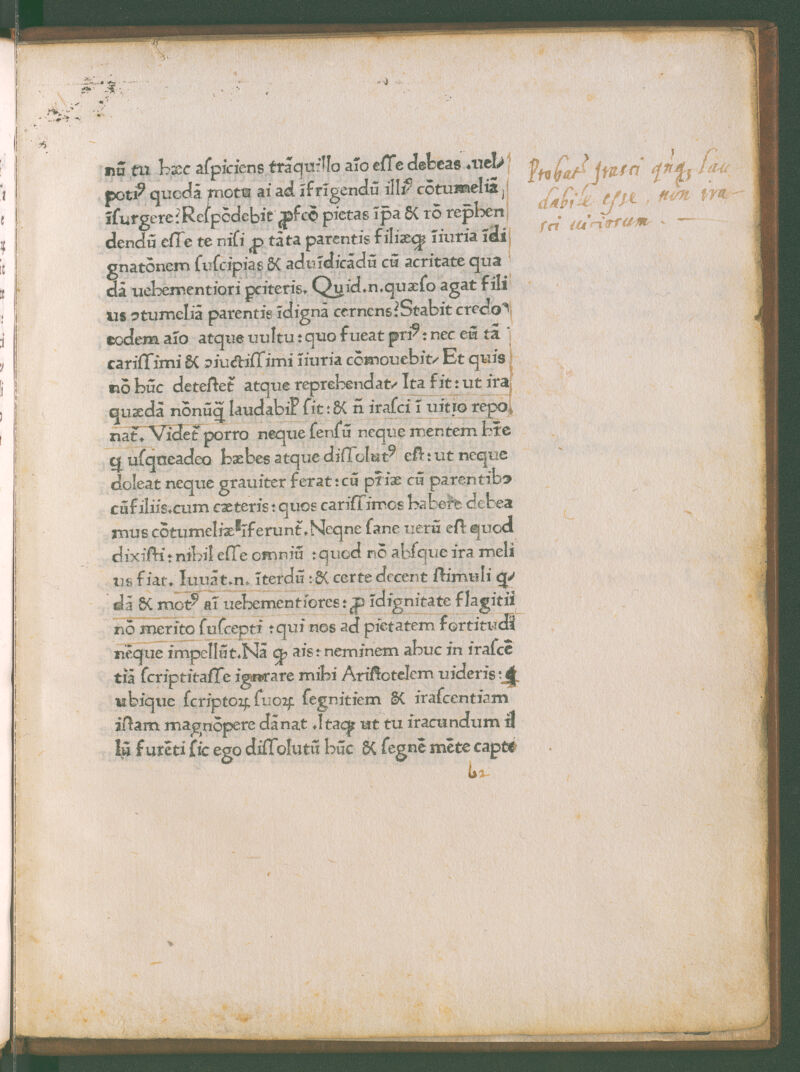 nū tu hæc aſpiciens trāquillo aīo eſſe debeas .uel
potiꝰ quodā motu ai ad īfrīgendū illiꝰ cōtumeliā,
īſurgere?Reſpōdebit ꝓfcō pietas īp̄a & rō rep̄hen
dendū eſſe te niſi ꝓ tāta parentis filiæq; īiuria īdi
gnatōnem ſuſcipias & aduīdicādū cū acritate qua
dā uehementiori p̱citeris. Quid.n.quæſo agat fili
us ↄtumeliā parentis īdignā cernens?Stabit credo
eodem aīo atque uultu:quo fueat pr̄iꝰ: nec eū tā
cariſſimi & ↄiuctiſſimi īiuria cōmouebit/ Et quis
nō hūc deteſtet̄ atque reprehendat/ Ita fit: ut ira
quædā nōnūq̄ laudabil' ſit:& n̄ iraſci ī uitio repo
nat̄. Videt̄ porro neque ſenſū neque mentem hr̄e
q uſqueadeo hæbes atque diſſolutꝰ eſt: ut neque
doleat neque grauiter ferat:cū pr̄iæ cū parentibↄ
cūfiliis.cum cæteris: quos cariſſimos habere debea
mus cōtumeliæ īferunt̄.Neqne ſane uerū eſt quod
dixiſti: nihil eſſe omniū :quod nō abſque ira meli
us fiat. Iuuāt.n. īterdū :& certe decent ſtimuli q/
dā & motꝰ aī uehementiores: ꝓ īdignitate flagitii
nō merito ſuſcepti :qui nos ad pietatem fortitudī
nēque impellūt.Nā ꝙ ais: neminem ahuc in iraſcē
tiā ſcriptitaſſe ignorare mihi Ariſtotelem uideris: q
ubique ſcriptoꝝ ſuoꝝ ſegnitiem & iraſcentiam
iſtam magnōpere dānat .Itaq; ut tu iracundum il
lū furēti ſic ego diſſolutū hūc & ſegnē mēte capto
b2
Probat' Irasci q̃nq; lau
dabile esse, non ira
sci uitiosum.